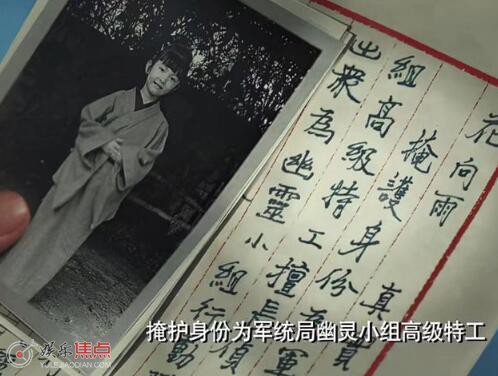 花向雨 真實
掩護身份為軍
組高級特工擅長偵
出衆為幽靈小組行動
掩护身份为军统局幽灵小组高级特工
娱乐焦点
YULE.JIAODIAN.COM